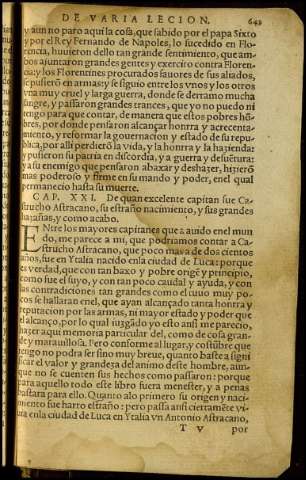 DE VARIA LECION. 649
y aun no paro aqui la cosa, que sabido por el papa Sixto
y por el Rey Fernando de Napoles, lo sucedido en Flo-
rencia, huuieron dello tan grande sentimiento, que am
bos ajuntaron grandes gentes y exercito contra Floren-
cia: y los Florentines procurados fauores de sus aliados,
se pusierō en armas: y se siguio entre los vnos y los otros
vna muy cruel y larga guerra, donde se derramo mucha
sangre, y passaron grandes trances, que yo no puedo ni
tengo para que contar, de manera que estos pobres hō-
bres, por donde pensaron alcançar honrra y acrecenta-
miento, y reformar la gouernacion y estado de su repu-
blica, por alli perdierō la vida, y la honrra y la hazienda:
y pusieron su patria en discordia, y a guerra y desuētura:
y a su enemigo que pensaron abaxar y deshazer, hizierō
mas poderoso y firme en su mando y poder, en el qual
permanecio hasta su muerte.
CAP. XXI. De quan excelente capitan fue Ca-
strucho Astracano, su estraño nacimiento, y sus grandes
hazañas, y como acabo.
ENtre los mayores capitanes que a auido en el mun
do, me parece a mi, que podriamos contar a Ca-
strucho Astracano, que poco mas a de dozientos
años, fue en Ytalia nacido en la ciudad de Luca: porque
es verdad, que con tan baxo y pobre origē y principio,
como fue el suyo, y con tan poco caudal y ayuda, y con
las contradiciones tan grandes como el tuuo muy po-
cos se hallaran en el, que ayan alcançado tanta honrra y
reputacion por las armas, ni mayor estado y poder que
el alcanço, por lo qual juzgādo yo esto ansi me parecio,
hazer aqui memoria particular del, como de cosa gran-
de y marauillosa. Pero conforme al lugar, y costūbre que
tengo no podra ser sino muy breue, quanto baste a signi
ficar el valor y grandeza del animo deste hombre, aun-
que no se cuenten sus hechos como passaron: porque
para aquello todo este libro fuera menester, y a penas
bastara para ello. Quanto a lo primero su origen y naci-
miento fue harto estraño: pero passa ansi ciertamēte vi-
uia en la ciudad de Luca en Ytalia vn Antonio Astracano,
T v por